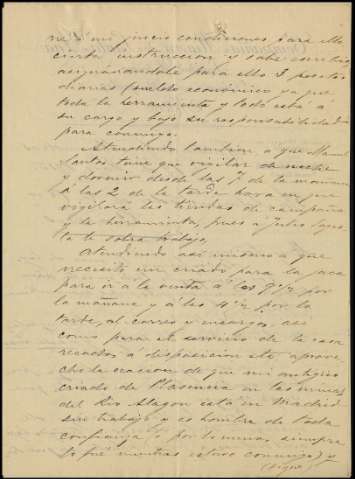 ne á mi juicio condiciones para ello
cierta instruccion y sabe escribir
asignándole para ello 3 pesetas
diarias (sueldo económico ya que
toda la herramienta y todo está á
su cargo y bajo su responsabilidad
para conmigo.
Atendiendo tambien a que Manuel
Santos tiene que vigilar de noche
y dormir desde las 7 de la mañana
á las 2 de la tarde, hora en que
vigilará las tiendas de campaña
y la herramienta, pues a Julio
le sobra trabajo,
Atendiendo asi mismo a que
necesito un criado para la
para ir á la venta á las 9½ por
la mañana y á las 4½ por la
tarde, al correo y encargos, asi
como para el servicio de la casa
recados á disposicion etc, aprove
cho la ocasion de que mi antiguo
criado de Plasencia en las minas
del Rio Alagon está en Madrid
sin trabajo y es hombre de toda
confianza (ó por lo menos siempre
lo fué mientras estuvo conmigo) y
(sigue)